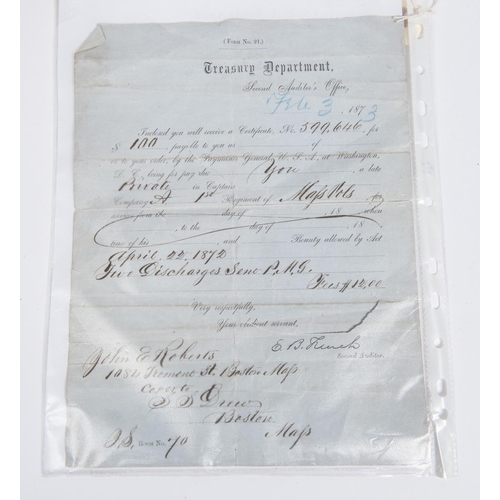 (Form No. 21.)
Treasury Department,
Second Auditor's Office,
Feb 3, 1873
Inclosed you will receive a Certificate, No. 599.646, for
$ 100 payable to you as of
or to your order, by the Paymaster General U. S. A., at Washington,
D. C., being for pay due You, a late
Private in Captain
Company A 1st Regiment of Mass Vols, for
service from the day of , 18 , when
, to the day of 18 ,
time of his , and Bounty allowed by Act
April 22, 1872
Two Discharges Sent P.M.G.
Fees $12.00
Very respectfully,
Your obedient servant,
E B French
Second Auditor.
John E Roberts
1084 Tremont St. Boston Mass
Care to
Drew
Boston
Mass
Room No. 70